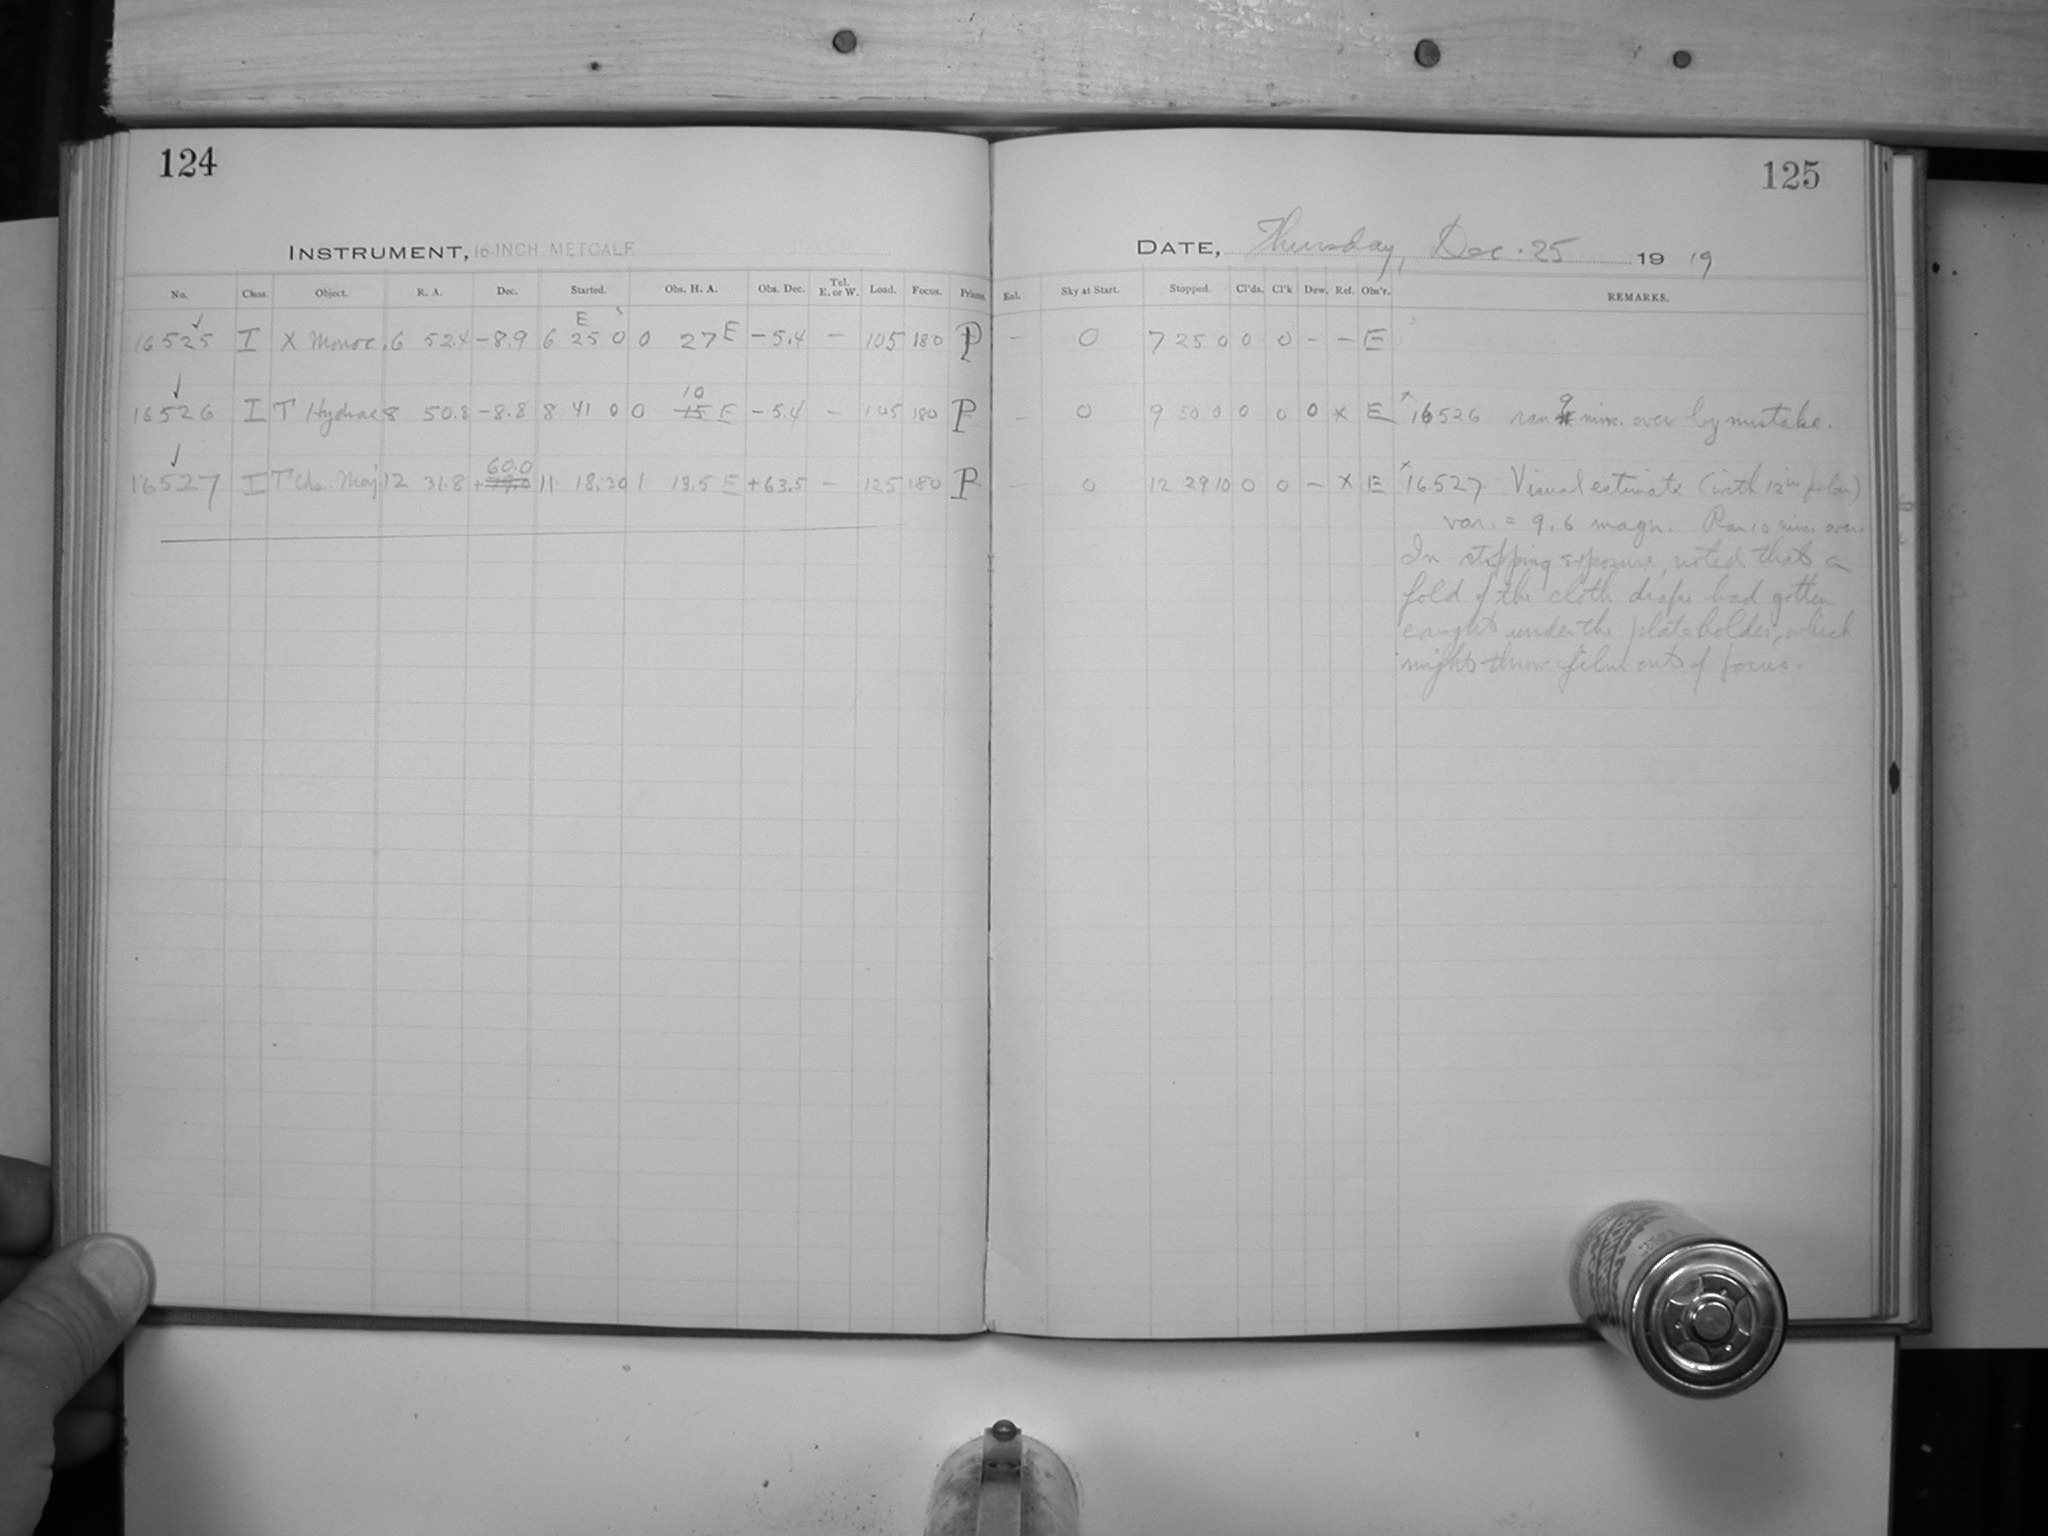 124
INSTRUMENT, 16-INCH METCALF
No. Class. Object. R. A. Dec. Started. Obs. H. A. Obs. Dec. Tel. E. or W. Load. Focus. Prisms.
16525 I X Monoc. 6 52.4 -8.9 6 25 0 0 27 E -5.4 - 105 180 P
16526 I T Hydrae 8 50.8 -8.8 8 41 0 0 10 E -5.4 - 105 180 P
16527 I T Urs. Maj. 12 31.8 + 60.0 11 18.30 1 13.5 E +63.5 - 125 180 P
125
DATE, Thursday, Dec. 25 1919
Enl. Sky at Start. Stopped. Cl'ds. Cl'k Dew. Ref. Obs'r. REMARKS.
- 0 7 25 0 0 0 - - E
- 0 9 50 0 0 0 0 x E x 16526 ran 9 min. over by mistake.
- 0 12 29 10 0 0 - x E x 16527 Visual estimate (with 12in polar)
var. = 9.6 magn. Ran 10 min. over.
In stopping exposure, noted that a
fold of the cloth drape had gotten
caught under the plateholder, which
might throw film out of focus.